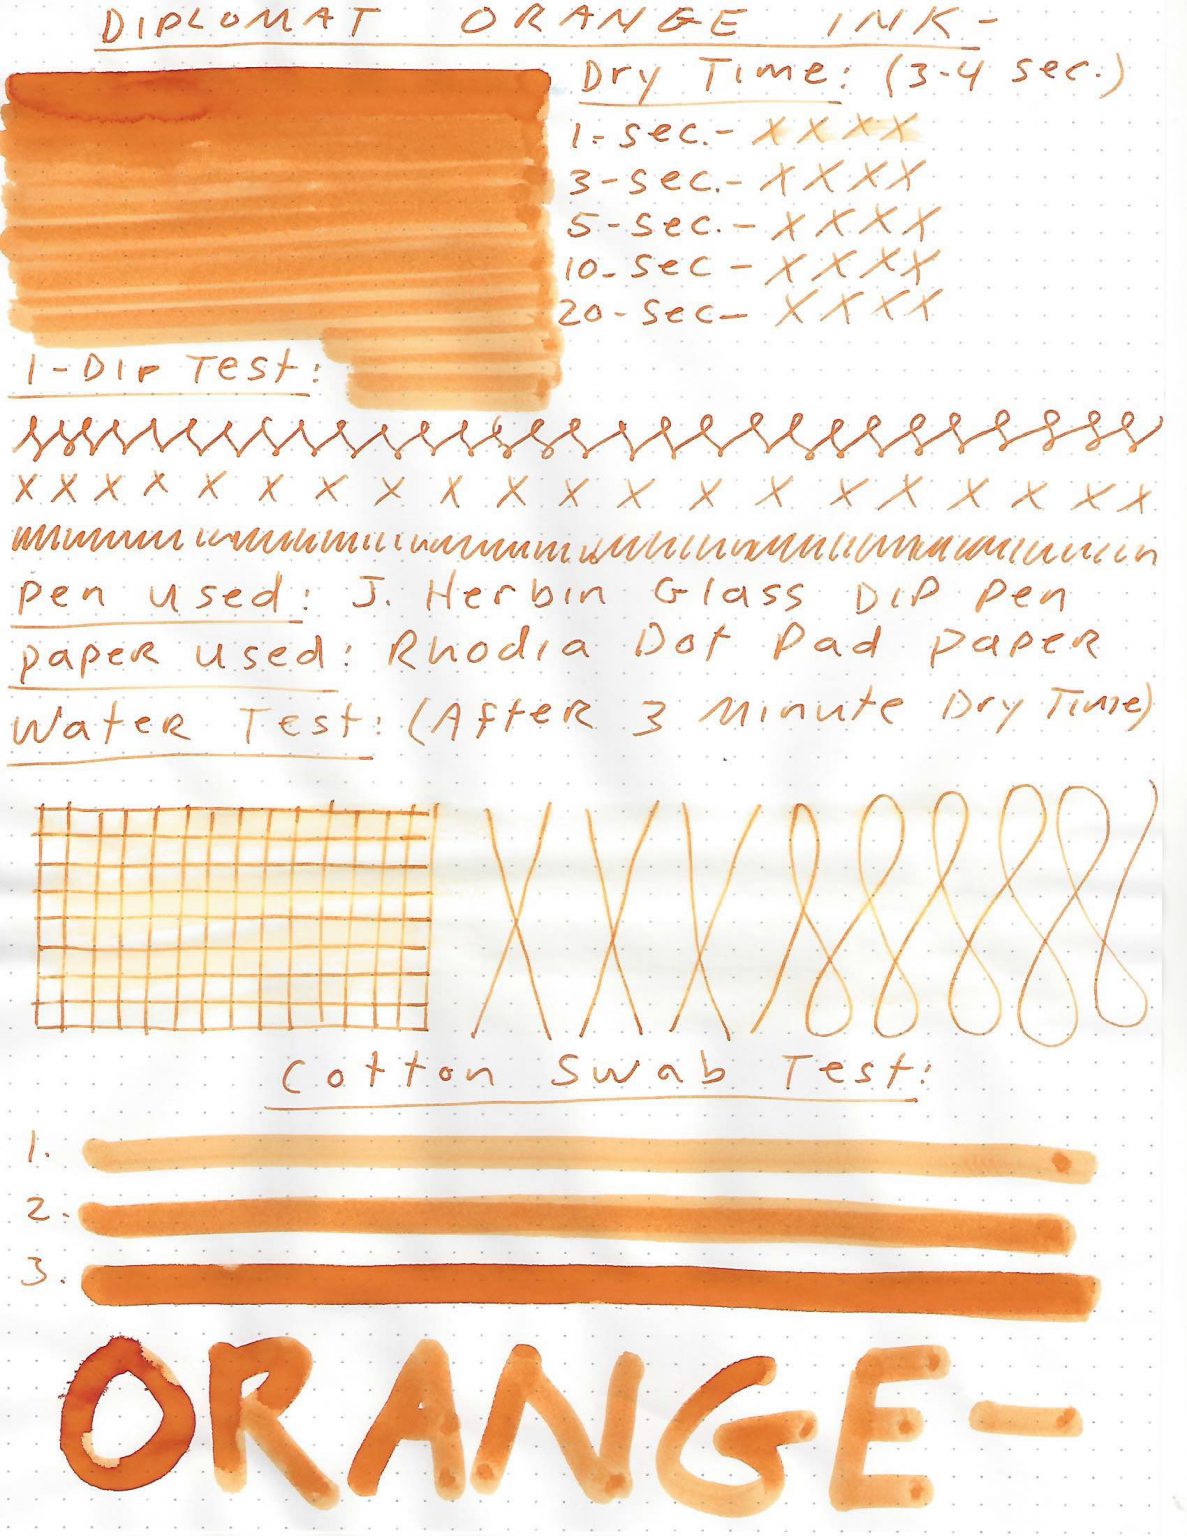 DIPLOMAT ORANGE INK-
Dry Time: (3-4 sec.)
1-sec.- X X X X
3-sec.- X X X X
5-sec.- X X X X
10-sec- X X X X
20-sec- X X X X
1-Dip Test:
X X X X X X X X X X X X X X X X X X X X
Pen used: J. Herbin Glass Dip Pen
paper used: Rhodia Dot Pad paper
Water Test: (After 3 Minute Dry Time)
Cotton Swab Test:
1.
2.
3.
ORANGE-